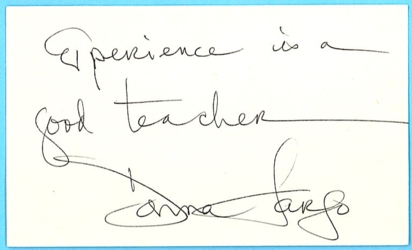 Experience is a
good teacher
Donna Fargo